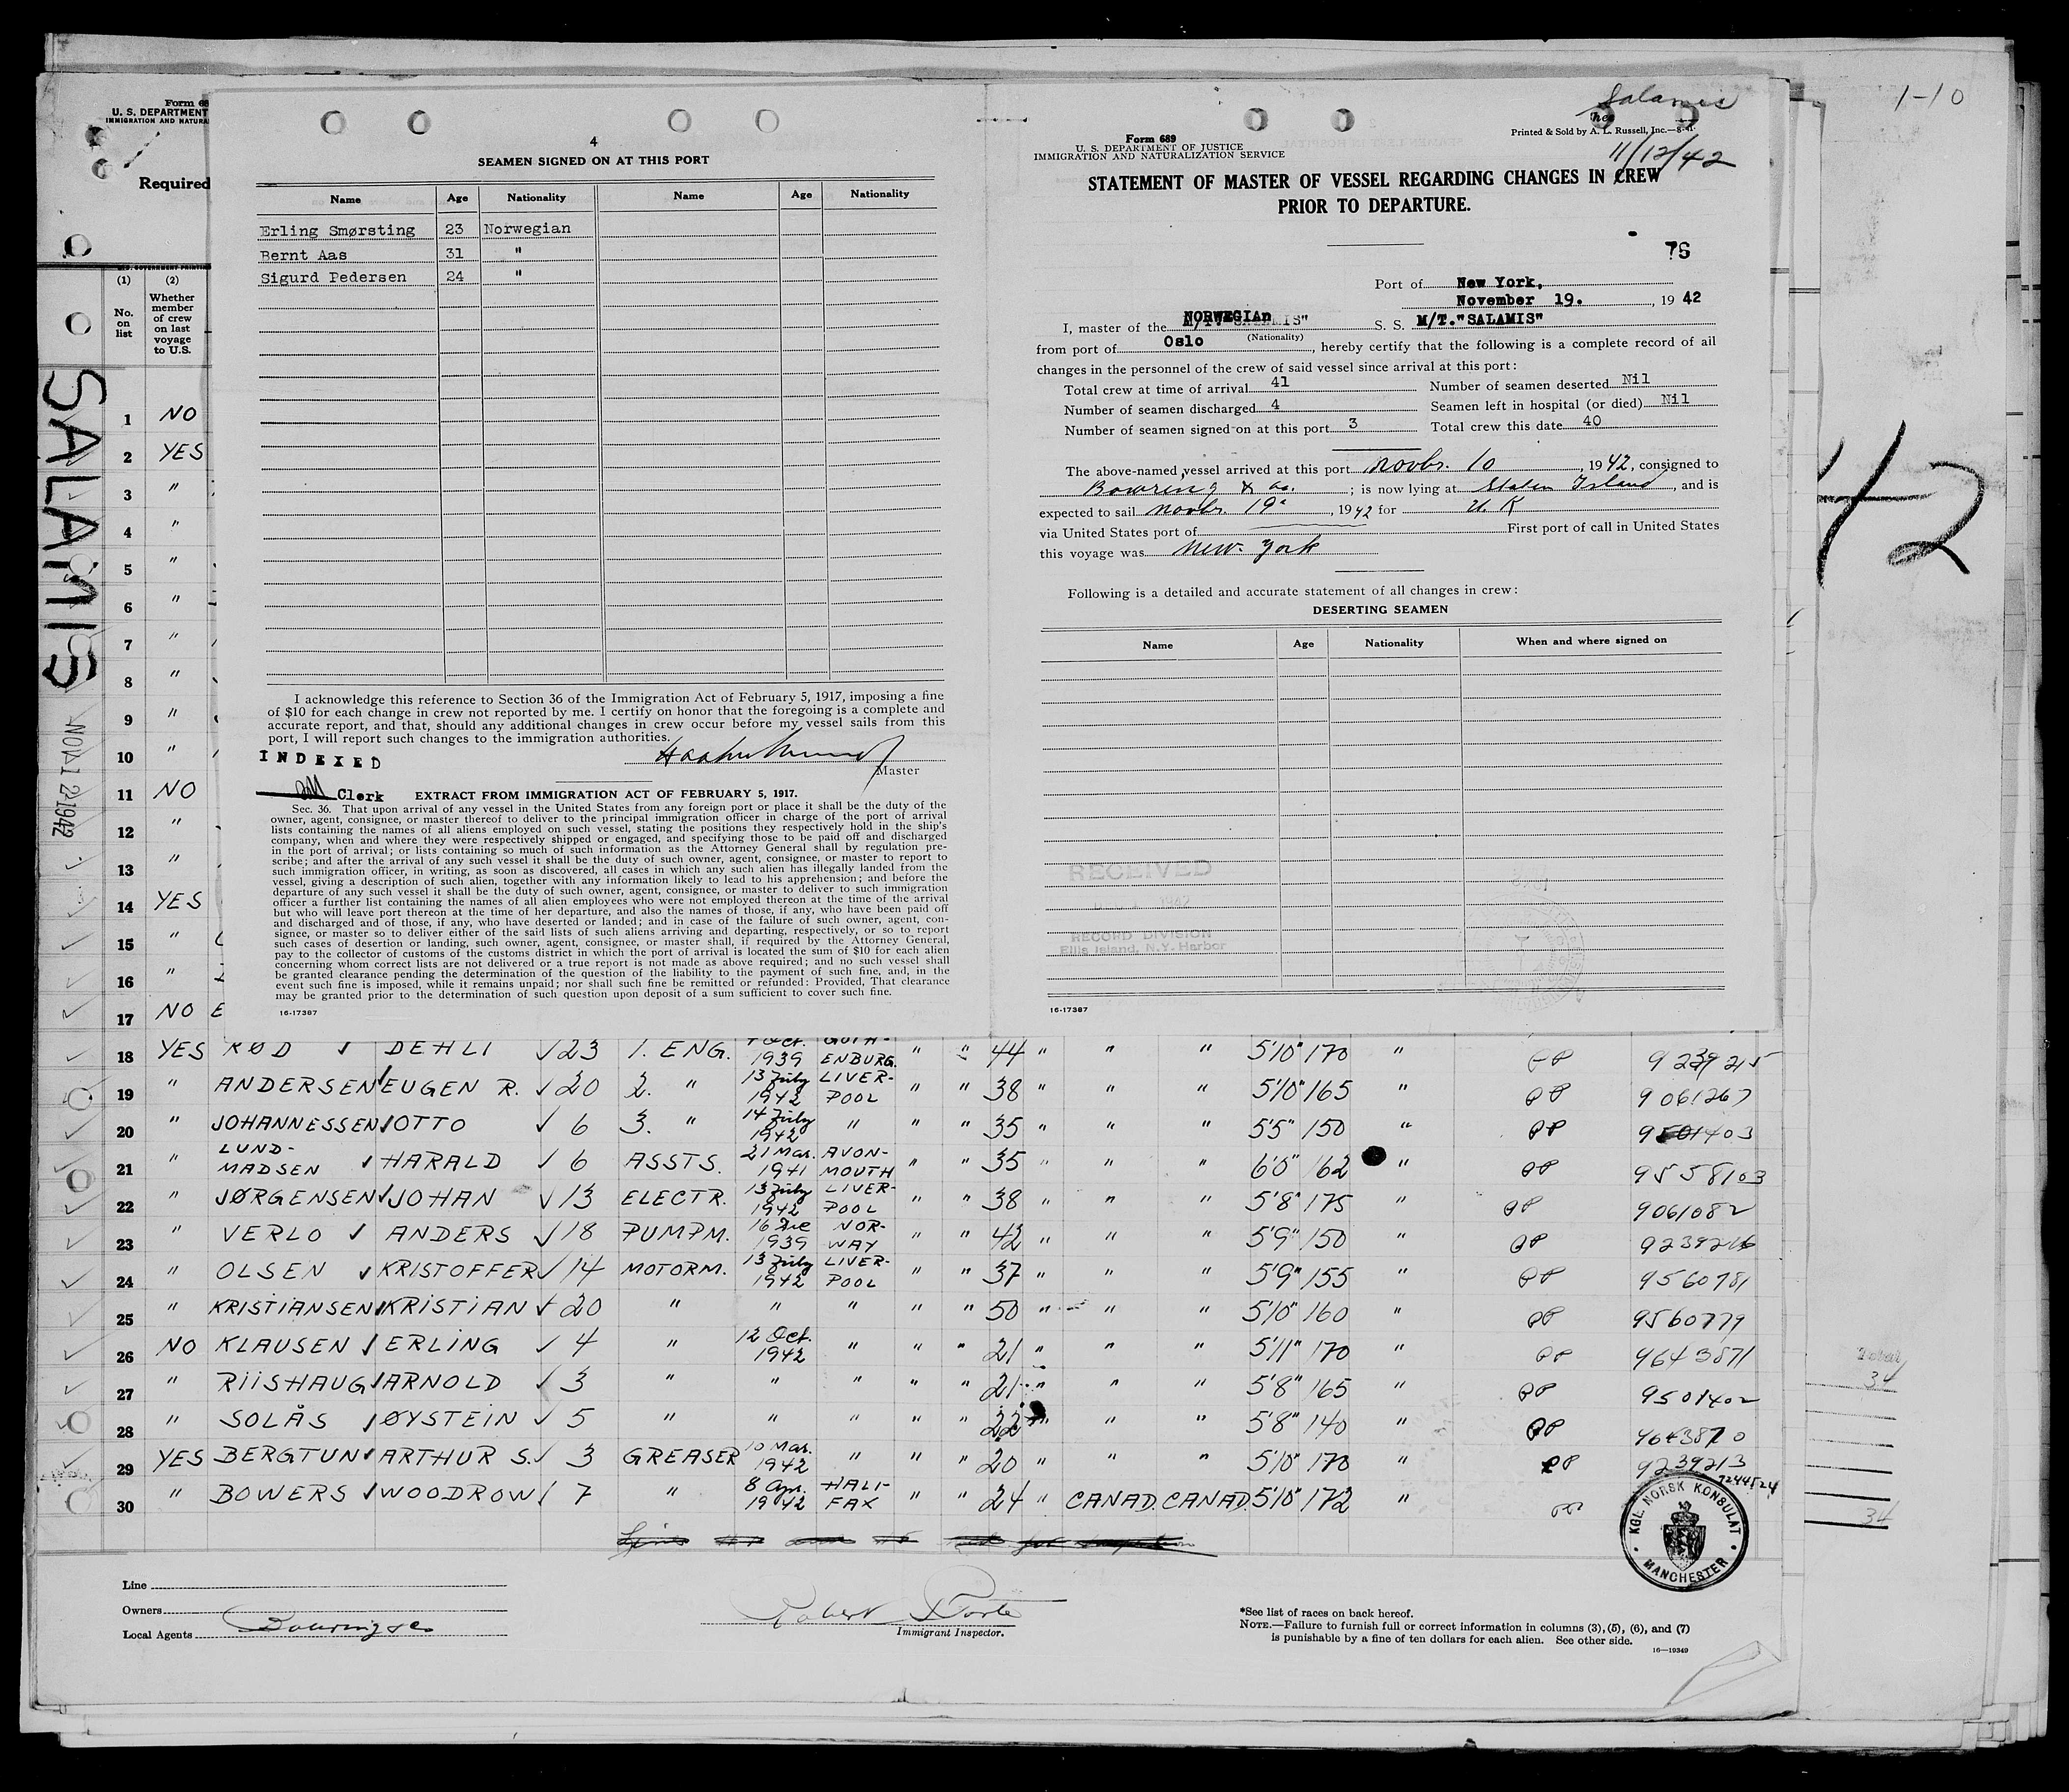 Form 68
U. S. DEPARTMENT
IMMIGRATION AND NATURA
Required
(1) (2)
No. on list
Whether member of crew on last voyage to U.S.
SALAMIS
NOV 12 1942
1 NO
2 YES
3 "
4 "
5 "
6 "
7 "
8 "
9 "
10 "
11 NO
12 "
13 "
14 YES
15 "
16 "
17 NO E
4
SEAMEN SIGNED ON AT THIS PORT
Name Age Nationality Name Age Nationality
Erling Smørsting 23 Norwegian
Bernt Aas 31 "
Sigurd Pedersen 24 "
I acknowledge this reference to Section 36 of the Immigration Act of February 5, 1917, imposing a fine
of $10 for each change in crew not reported by me. I certify on honor that the foregoing is a complete and
accurate report, and that, should any additional changes in crew occur before my vessel sails from this
port, I will report such changes to the immigration authorities.
INDEXED
Master
Clerk
EXTRACT FROM IMMIGRATION ACT OF FEBRUARY 5, 1917.
Sec. 36. That upon arrival of any vessel in the United States from any foreign port or place it shall be the duty of the
owner, agent, consignee, or master thereof to deliver to the principal immigration officer in charge of the port of arrival
lists containing the names of all aliens employed on such vessel, stating the positions they respectively hold in the ship's
company, when and where they were respectively shipped or engaged, and specifying those to be paid off and discharged
in the port of arrival; or lists containing so much of such information as the Attorney General shall by regulation pre-
scribe; and after the arrival of any such vessel it shall be the duty of such owner, agent, consignee, or master to report to
such immigration officer, in writing, as soon as discovered, all cases in which any such alien has illegally landed from the
vessel, giving a description of such alien, together with any information likely to lead to his apprehension; and before the
departure of any such vessel it shall be the duty of such owner, agent, consignee, or master to deliver to such immigration
officer a further list containing the names of all alien employees who were not employed thereon at the time of the arrival
but who will leave port thereon at the time of her departure, and also the names of those, if any, who have been paid off
and discharged and of those, if any, who have deserted or landed; and in case of the failure of such owner, agent, con-
signee, or master so to deliver either of the said lists of such aliens arriving and departing, respectively, or so to report
such cases of desertion or landing, such owner, agent, consignee, or master shall, if required by the Attorney General,
pay to the collector of customs of the customs district in which the port of arrival is located the sum of $10 for each alien
concerning whom correct lists are not delivered or a true report is not made as above required; and no such vessel shall
be granted clearance pending the determination of the question of the liability to the payment of such fine, and, in the
event such fine is imposed, while it remains unpaid; nor shall such fine be remitted or refunded: Provided, That clearance
may be granted prior to the determination of such question upon deposit of a sum sufficient to cover such fine.
16-17387
Salamis
11/12/42
Printed & Sold by A. L. Russell, Inc.—8-41
Form 689
U. S. DEPARTMENT OF JUSTICE
IMMIGRATION AND NATURALIZATION SERVICE
STATEMENT OF MASTER OF VESSEL REGARDING CHANGES IN CREW
PRIOR TO DEPARTURE.
76
Port of New York,
November 19. , 19 42
I, master of the NORWEGIAn S. S. M/T."SALAMIS"
(Nationality)
from port of Oslo , hereby certify that the following is a complete record of all
changes in the personnel of the crew of said vessel since arrival at this port:
Total crew at time of arrival 41 Number of seamen deserted Nil
Number of seamen discharged 4 Seamen left in hospital (or died) Nil
Number of seamen signed on at this port 3 Total crew this date 40
The above-named vessel arrived at this port Novbr. 10 , 1942, consigned to
Bowring & Co. ; is now lying at Staten Island , and is
expected to sail Novbr. 19. , 1942 for U. K
via United States port of First port of call in United States
this voyage was New. York
Following is a detailed and accurate statement of all changes in crew:
DESERTING SEAMEN
Name Age Nationality When and where signed on
RECEIVED
1942
RECORD DIVISION
Ellis Island, N.Y. Harbor
16-17387
1-10
42
18 YES RØD DEHLI 23 1. ENG. 1 Oct. 1939 GOTH-ENBURG. " " 44 " " " 5'10" 170 " 9239215
19 " ANDERSEN EUGEN R. 20 2. " 13 July 1942 LIVER-POOL " " 38 " " " 5'10" 165 " 9061267
20 " JOHANNESSEN OTTO 6 3. " 14 July 1942 " " " 35 " " " 5'5" 150 "
21 " LUND-MADSEN HARALD 6 ASSTS. 21 Mar. 1941 AVON-MOUTH " " 35 " " " 6'0" 162 " 9558103
22 " JØRGENSEN JOHAN 13 ELECTR. 13 July 1942 LIVER-POOL " " 38 " " " 5'8" 175 " 9061082
23 " VERLO ANDERS 18 PUMPM. 16 1939 NOR-WAY " " 42 " " " 5'9" 150 " 9239216
24 " OLSEN KRISTOFFER 14 MOTORM. 13 July 1942 LIVER-POOL " " 37 " " " 5'9" 155 " 9560781
25 " KRISTIANSEN KRISTIAN 20 " " " " " 50 " " " 5'10" 160 " 9560779
26 NO KLAUSEN ERLING 4 " 12 Oct. 1942 " " " 21 " " " 5'11" 170 " 9643871
27 " RIISHAUG ARNOLD 3 " " " " " 21 " " " 5'8" 165 " 9501402
28 " SOLÅS ØYSTEIN 5 " " " " " 22 " " " 5'8" 140 " 9643870
29 YES BERGTUN ARTHUR S. 3 GREASER 10 Mar. 1942 " " " 20 " " " 5'10" 170 " 9239213
30 " BOWERS WOODROW 7 " 8 Apr. 1942 HALI-FAX " " 24 " CANAD. CANAD. 5'10" 172 " 7244524
Total
34
34
KGL. NORSK KONSULAT MANCHESTER
Line
Owners
Local Agents Bowring & Co
Immigrant Inspector.
*See list of races on back hereof.
NOTE.—Failure to furnish full or correct information in columns (3), (5), (6), and (7)
is punishable by a fine of ten dollars for each alien. See other side.
16—19349